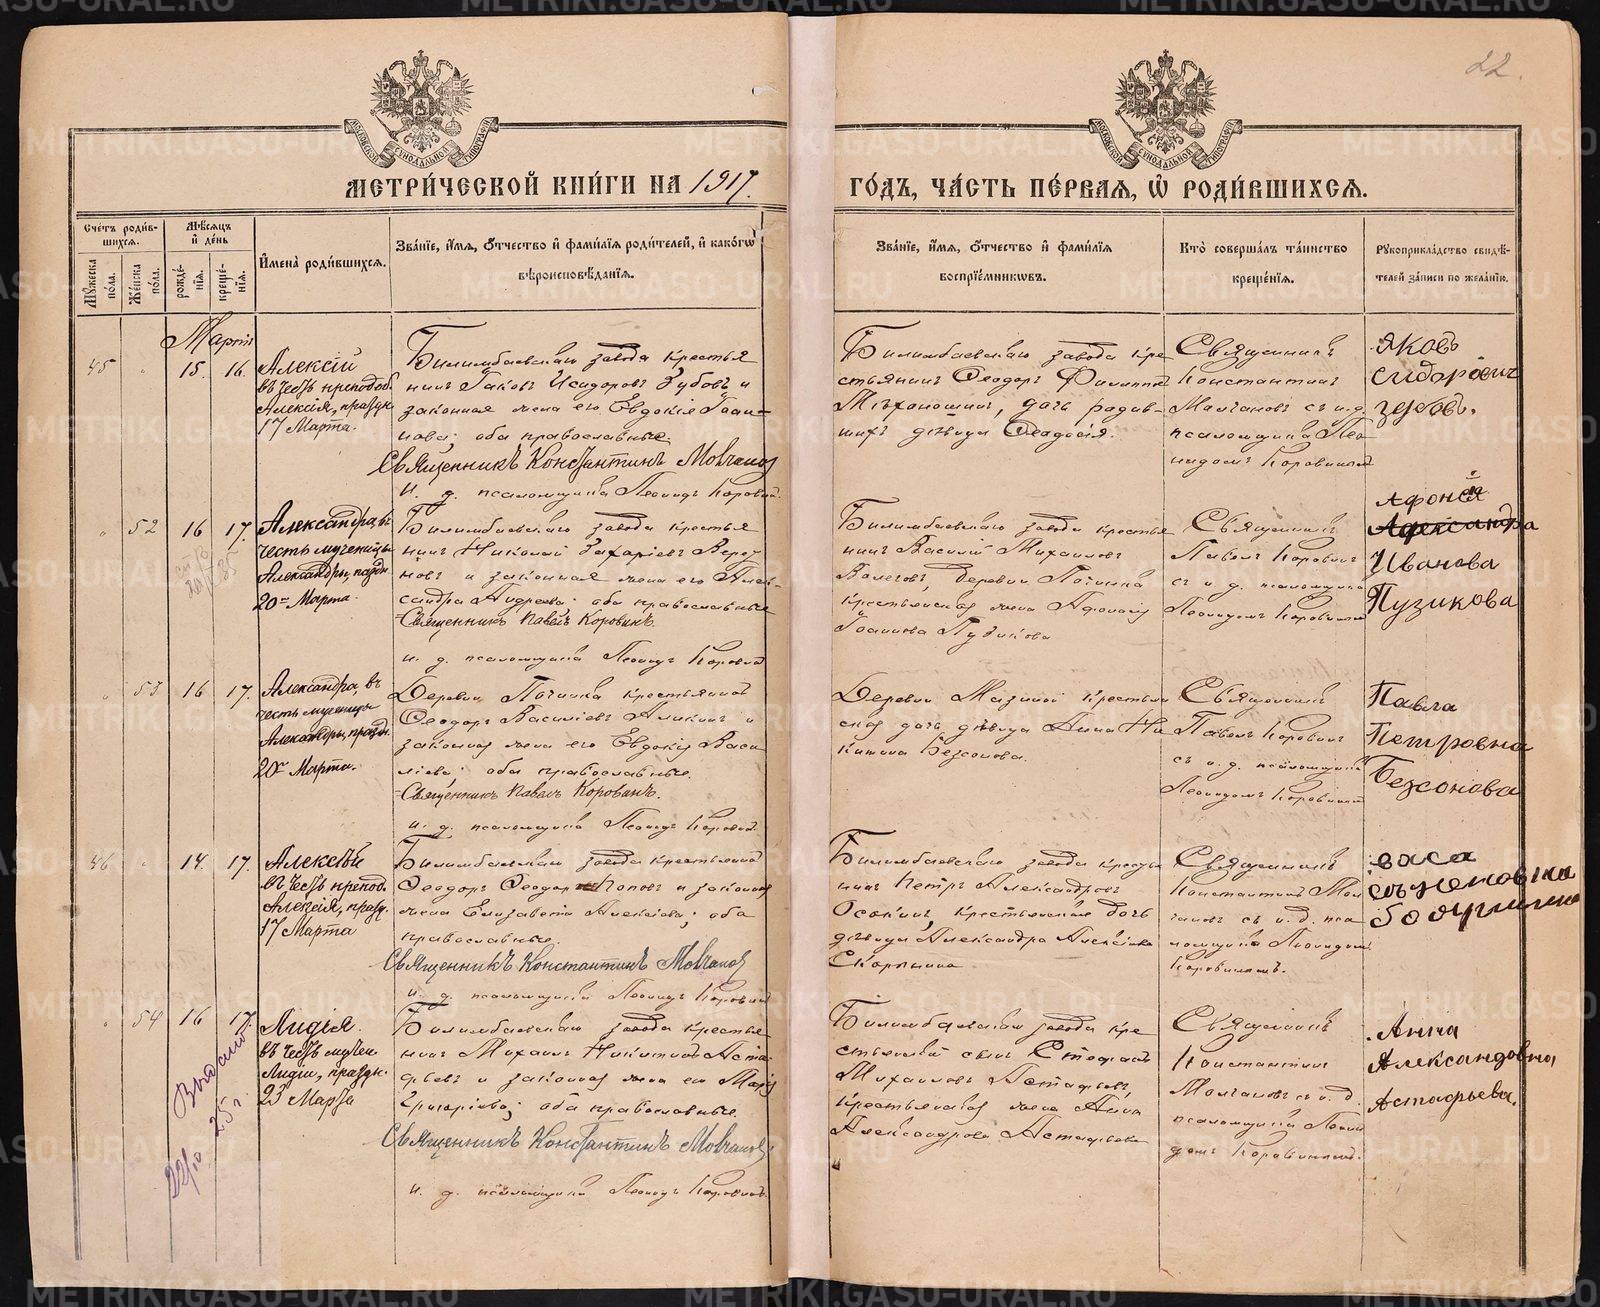 22.
МОСКОВСКОЙ СѴНОДАЛЬНОЙ ТИПОГРАФІИ
МОСКОВСКОЙ СѴНОДАЛЬНОЙ ТИПОГРАФІИ
МЕТРИ́ЧЕСКОЙ КНИ́ГИ НА 1917.
ГО́ДЪ, ЧА́СТЬ ПЕ́РВАЯ, Ѡ҆ РОДИ́ВШИХСЯ.
Счетъ роди́вшихся.
Мужеска по́ла.
Же́нска по́ла.
Мѣ́сяцъ и҆ де́нь
рожде́нія.
креще́нія.
И҆мена̀ роди́вшихся.
Зва́ніе, и҆́мя, о҆́тчество и҆ фами́лія роди́телей, и҆ како́гѡ
вѣроисповѣ́данія.
Зва́ніе, и҆́мя, о҆́тчество и҆ фами́лія
воспріе́мниковъ.
Кто̀ соверша́лъ та́инство
креще́нія.
Рукоприкла́дство свидѣ́-
телей за́писи по жела́нію.
Мартъ
45 " 15. 16.
Алексій
въ честь преподоб.
Алексія, праздн.
17 Марта.
Билимбаевскаго завода крестья
нинъ Іаковъ Исидоровъ Зубовъ и
законная жена его Евдокія Іоан-
нова; оба православные.
Священникъ Константинъ Молчанов
И. д. псаломщика Леонидъ Коровин
Билимбаевскаго завода кре
стьянинъ Ѳеодоръ Филиппов
дочь родив-
шихъ дѣвица Ѳеодосія.
Священникъ
Константинъ
Молчановъ съ и. д.
псаломщика Лео
нидомъ Коровинымъ
Яковъ
Сидоровичъ
Зубовъ.
" 52 16 17.
Александра, въ
честь мученицы
Александры, праздн.
20го Марта.
Билимбаевскаго завода крестья
нинъ Николай Захаріевъ
и законная жена его Алек-
сандра Андреева; оба православные
Священникъ Павелъ Коровинъ.
и. д. псаломщика Леонидъ Коровин
Билимбаевскаго завода крестья
нинъ Василій Михаиловъ
деревни Починка
крестьянская жена Аѳонасія
Іоаннова Пузикова
Священникъ
Павелъ Коровинъ
съ и. д. псаломщика
Леонидомъ Коровинымъ
Афонся
Александра
Иванова
Пузикова
" 53 16 17.
Александра, въ
честь мученицы
Александры, праздн.
20го Марта.
Деревни Починка крестьянин
Ѳеодоръ Василіевъ Аликинъ и
законная жена его Евдокія Васи
ліева; оба православные.
Священникъ Павелъ Коровинъ.
и. д. псаломщика Леонидъ Коровин
Деревни крестьян
ская дочь дѣвица Анна Ни
китина Безсонова.
Священникъ
Павелъ Коровинъ
съ и. д. псаломщика
Леонидомъ Коровинымъ
Павла
Петровна
Безсонова
46 " 14. 17.
Алексѣй
въ честь препод.
Алексія, празд.
17 Марта
Билимбаевскаго завода крестьянин
Ѳеодоръ Ѳеодор Поповъ и законная
жена Елизавета Алексіева; оба
православные.
Священникъ Константинъ Молчанов
и. д. псаломщика Леонидъ Коровин
Билимбаевскаго завода крестья
нинъ Петръ Александровъ
Осокинъ, крестьянская дочь
дѣвица Александра Алексіева
Скорынина
Священникъ
Константинъ Мол
чановъ съ и. д. пса
ломщика Леонидомъ
Коровинымъ.
" 54 16 17.
Лидія
въ честь мучен.
Лидіи, праздн.
23 Марта
Билимбаевскаго завода крестья
нинъ Михаилъ Никитинъ Аста
фьевъ и законная жена его Марія
Григоріева; оба православные.
Священникъ Константинъ Молчанов
и. д. псаломщика Леонидъ Коровин
Билимбаевскаго завода кре
стьянскій сынъ Стефанъ
Михаиловъ Астафьевъ,
крестьянская жена Анна
Александрова Астафьева
Священникъ
Константинъ
Молчановъ съ и. д.
псаломщика Леони
домъ Коровинымъ.
Анна
Александовна,
Астафьева.
Выдано
25 г.
METRIKI.GASO-URAL.RU